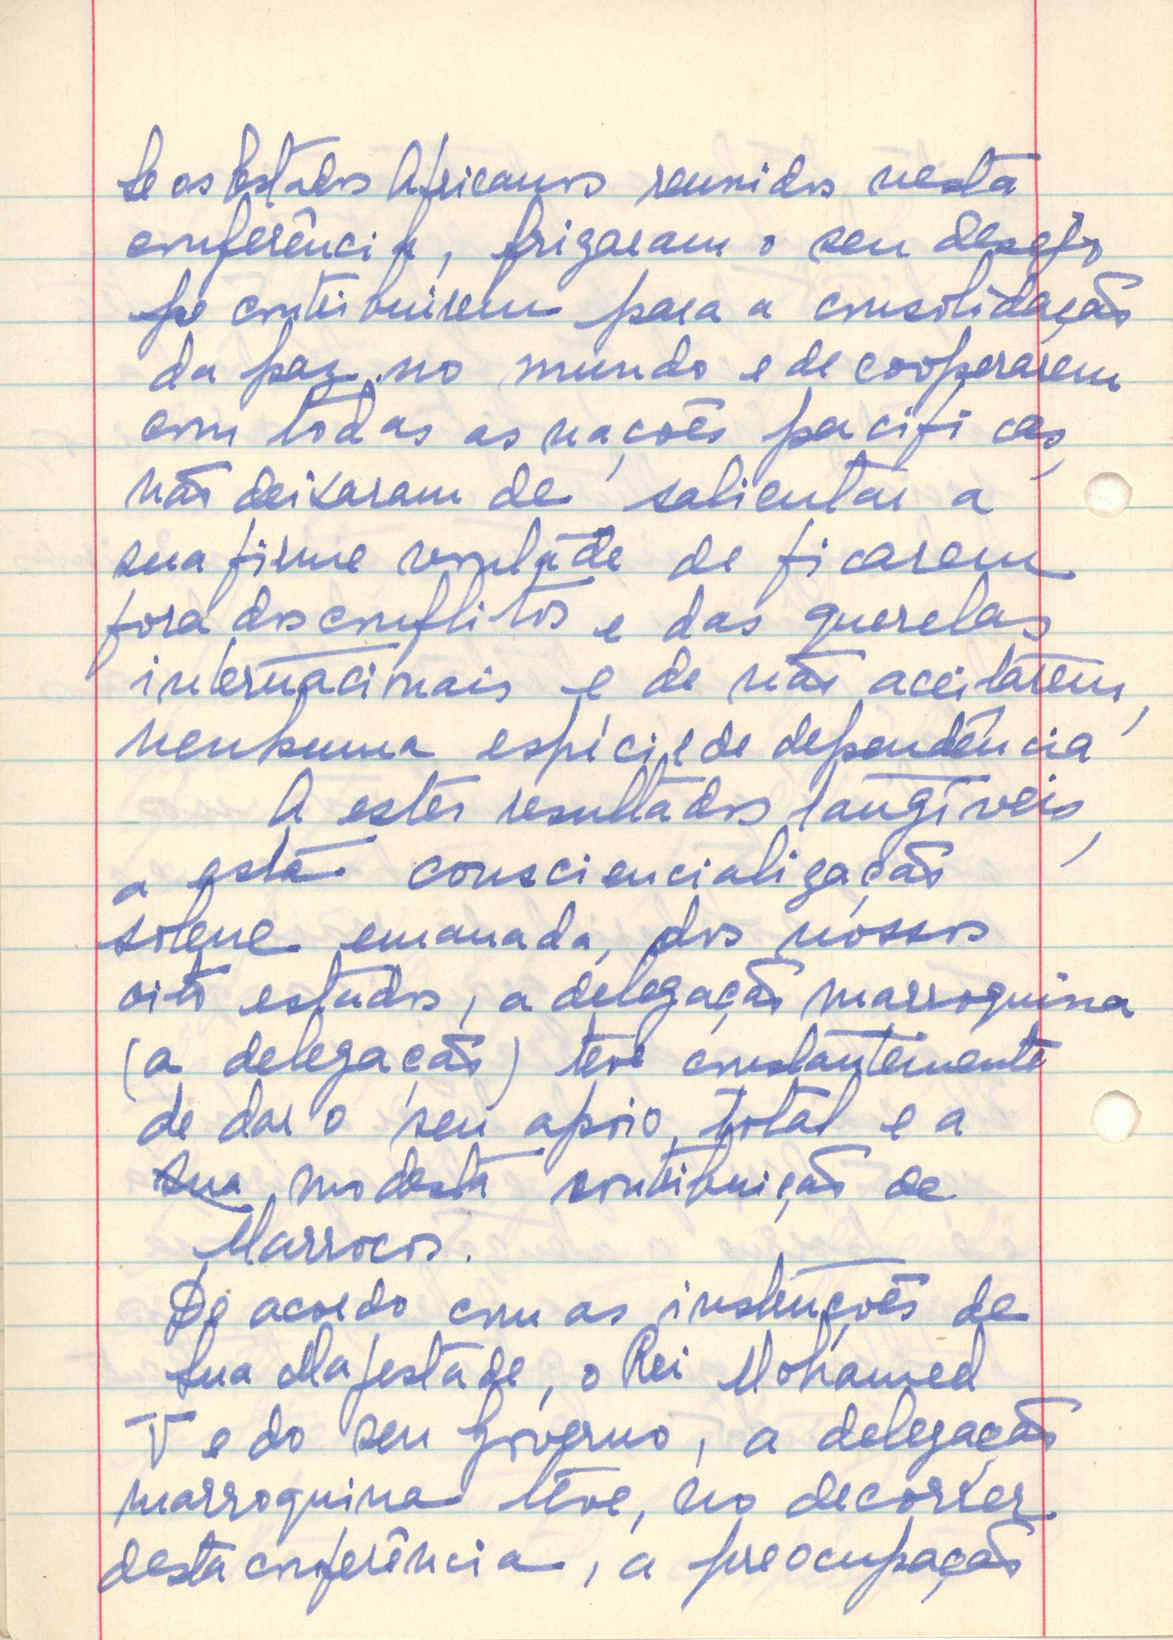 Se os Estados Africanos reunidos nesta
conferência, frizaram o seu desejo
de contribuirem para a consolidação
da paz no mundo e de cooperarem
com todas as nações pacificas,
não deixaram de salientar a
sua firme vontade de ficarem
fora dos conflitos e das querelas
internacionais e de não aceitarem,
nenhuma espécie de dependência
A estes resultados tangíveis,
a esta consciencialização
solene emanada, dos nossos
oito estados, a delegação marroquina
(a delegação) teve constantemente
de dar o seu apoio total e a
sua modesta contribuição de
Marrocos.
De acordo com as instruções de
Sua Majestade, o Rei Mohamed
V e do seu Governo, a delegação
marroquina teve, no decorrer
desta conferência, a preocupação